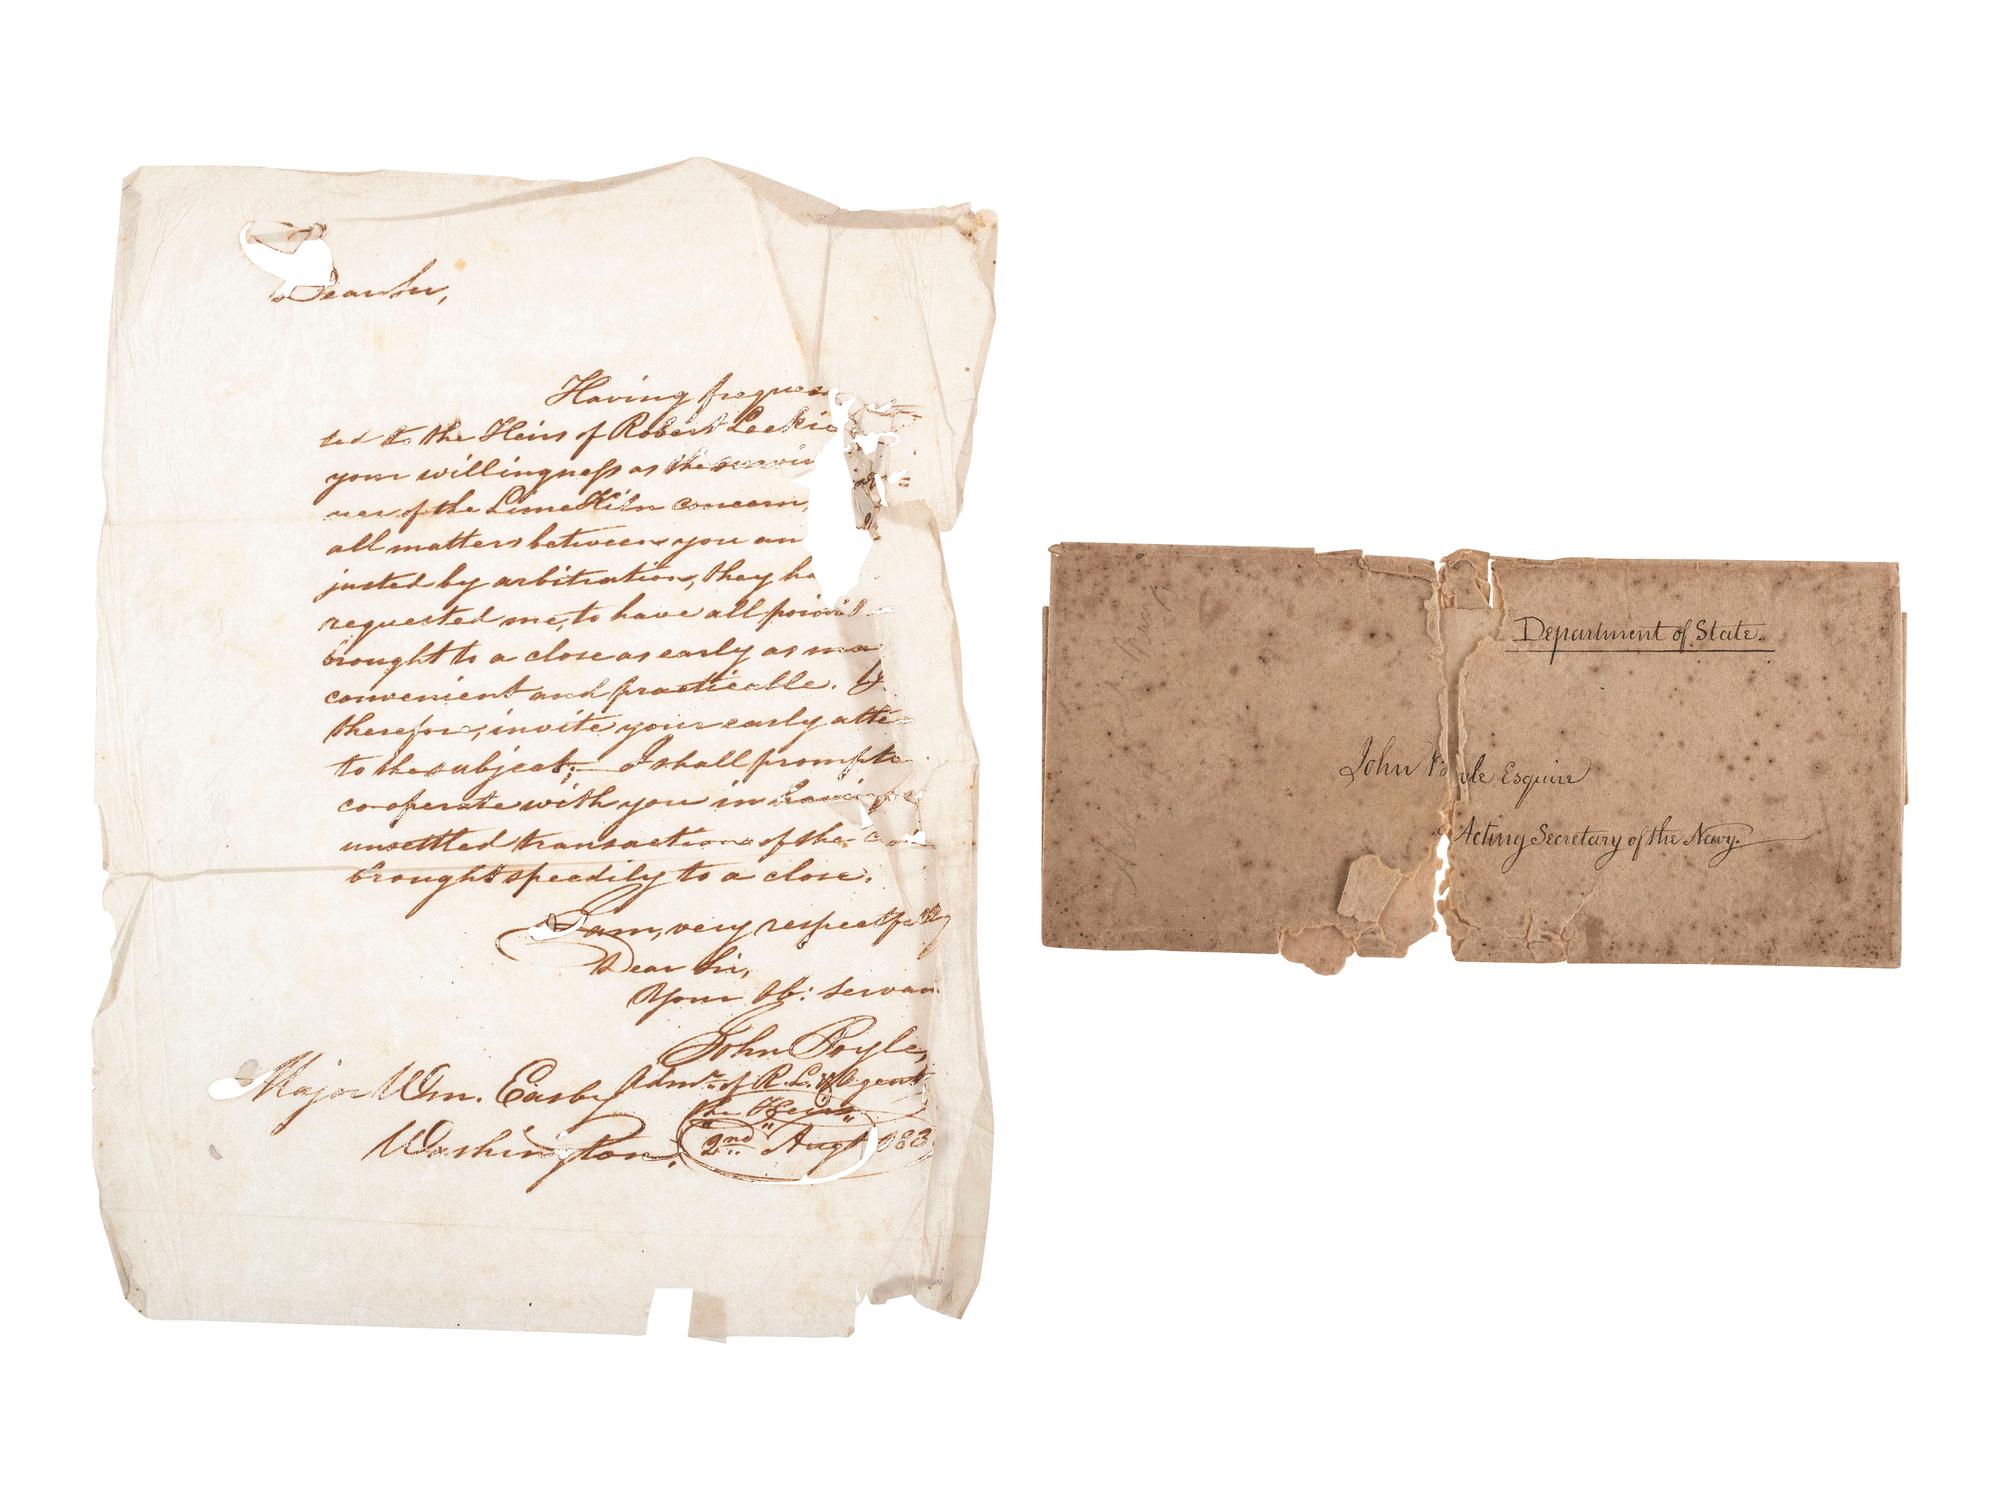 Dear Sir,
Having freque
ted to the Heirs of Robert Leckie
your willingness as the survi
ner of the Lime Kiln concern,
all matters between you an
justed by arbitration, they ha
requested me, to have all
brought to a close as early as ma
convenient and practicable.
therefore, invite your early atte
to the subject; — I shall prompt
co-operate with you in having
unsettled transactions of the
brought speedily to a close.
I am, very respectfully
Dear Sir,
Your Ob: Servan
John Boyle,
Admr. of R. L. & Agent
the Heirs
Major Wm. Easby
Washington.
2nd Augt 183
Department of State.
John Boyle Esquire
Acting Secretary of the Navy.